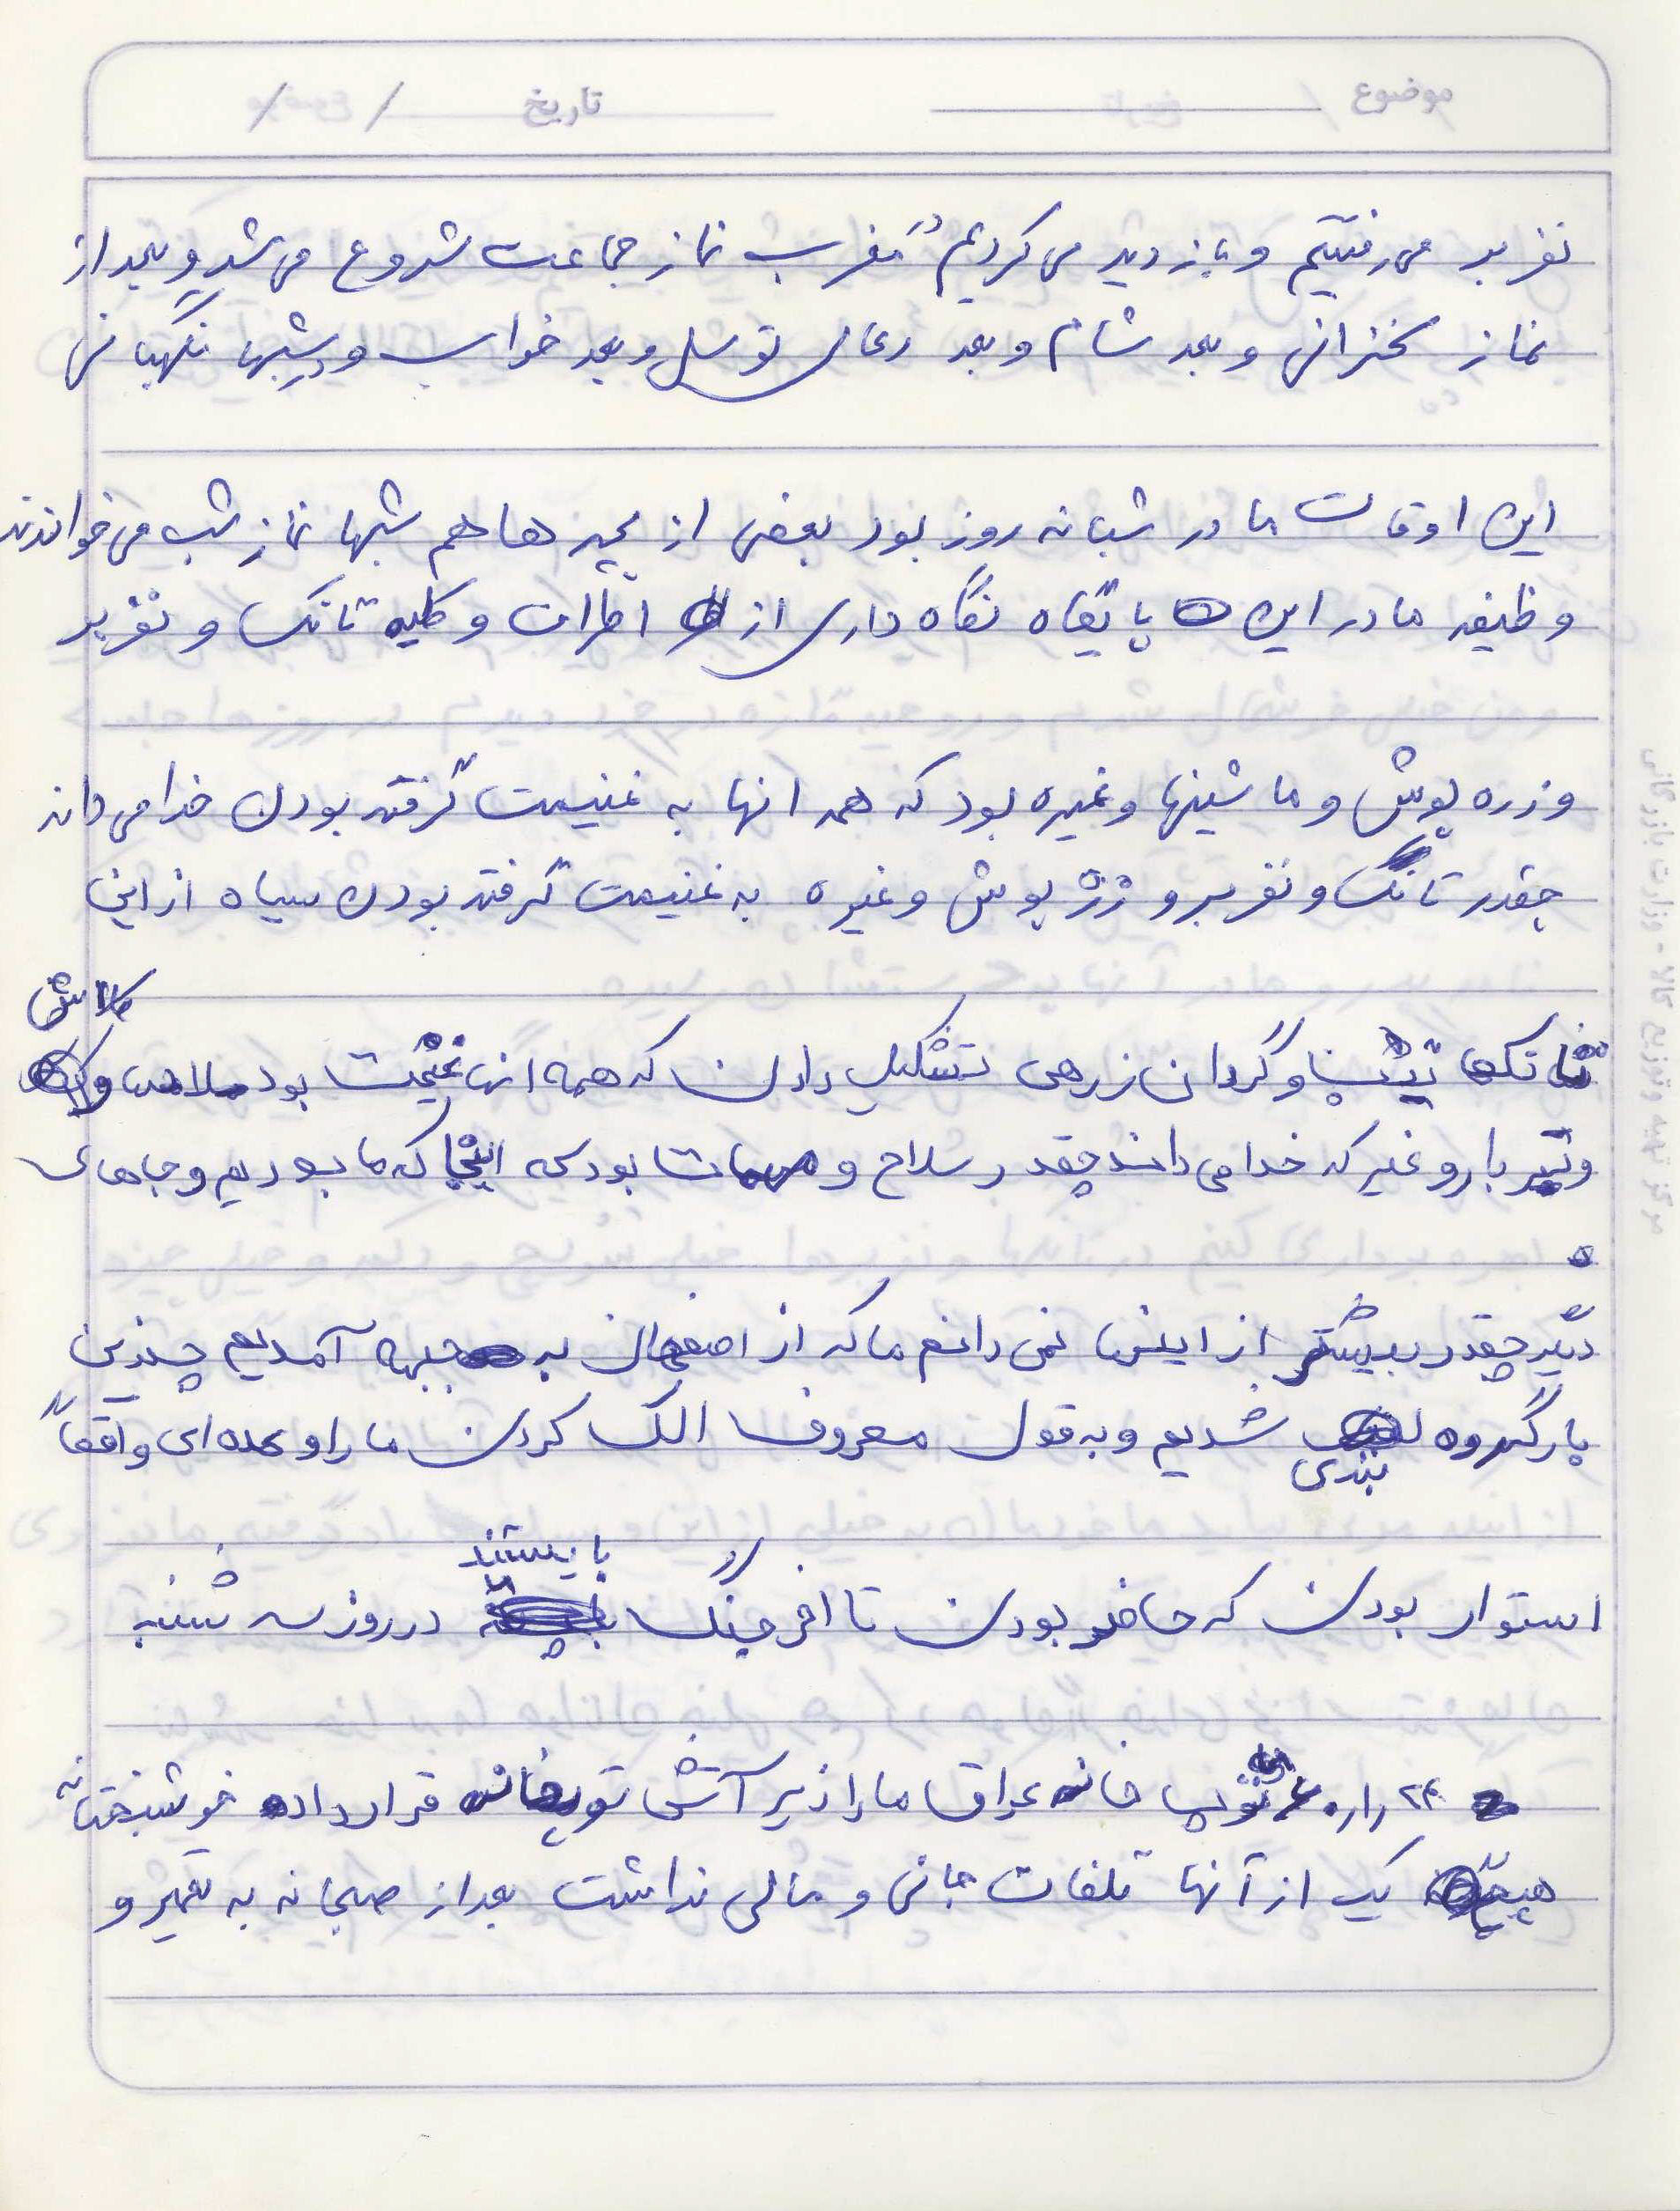 موضوع تاریخ / /
نفربر می‌رفتیم و بازدید می‌کردیم مغرب نماز جماعت شروع می‌شد و بعد از
نماز سخنرانی و بعد شام و بعد دعای توسل و بعد خواب و شبها نگهبانی
این اوقات ما در شبانه روز بود بعضی از بچه ها هم شبها نماز شب می‌خواندند
وظیفه ما در این پایگاه نگاه داری از اطراف و کلیه تانک و نفربر
و زره پوش و ماشینها و غیره بود که همه انها به غنیمت گرفته بودن خدا می‌داند
چقدر تانک و نفربر و زره پوش و غیره به غنیمت گرفته بودن سپاه از این
تانکها تیپ و گردان زرهی تشکیل دادن که همه انها غنیمت بود سلاحها و کلاش
و تیربار و غیر که خدا می داند چقدر سلاح و مهمات بود که اینجا که ما بودیم و جاهای
دیگر چقدر بیشتر از اینها نمی دانم ما که از اصفهان به جبهه آمدیم چندین
بار گروه بندی شدیم و به قول معروف الک کردن ما را و عده ای واقعاً
استوار بودن که حاضر بودن تا اخر جنگ بایستند در روز سه شنبه
توپ خانه عراق ما را زیر آتش توپخانه قرار داده خوشبختانه
هیچ یک از آنها تلفات جانی و مالی نداشت بعد از صبحانه به تعمیر و
مرکز تهیه و توزیع کالا - وزارت بازرگانی